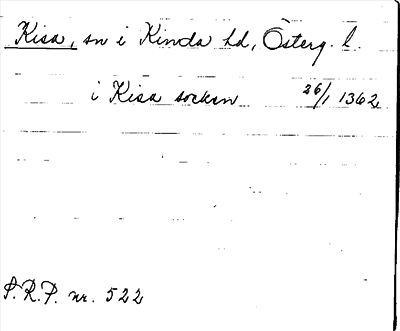 Kisa, sn i Kinda hd, Österg. l.
i Kisa socken 26/1 1362
S.R.P. nr. 522